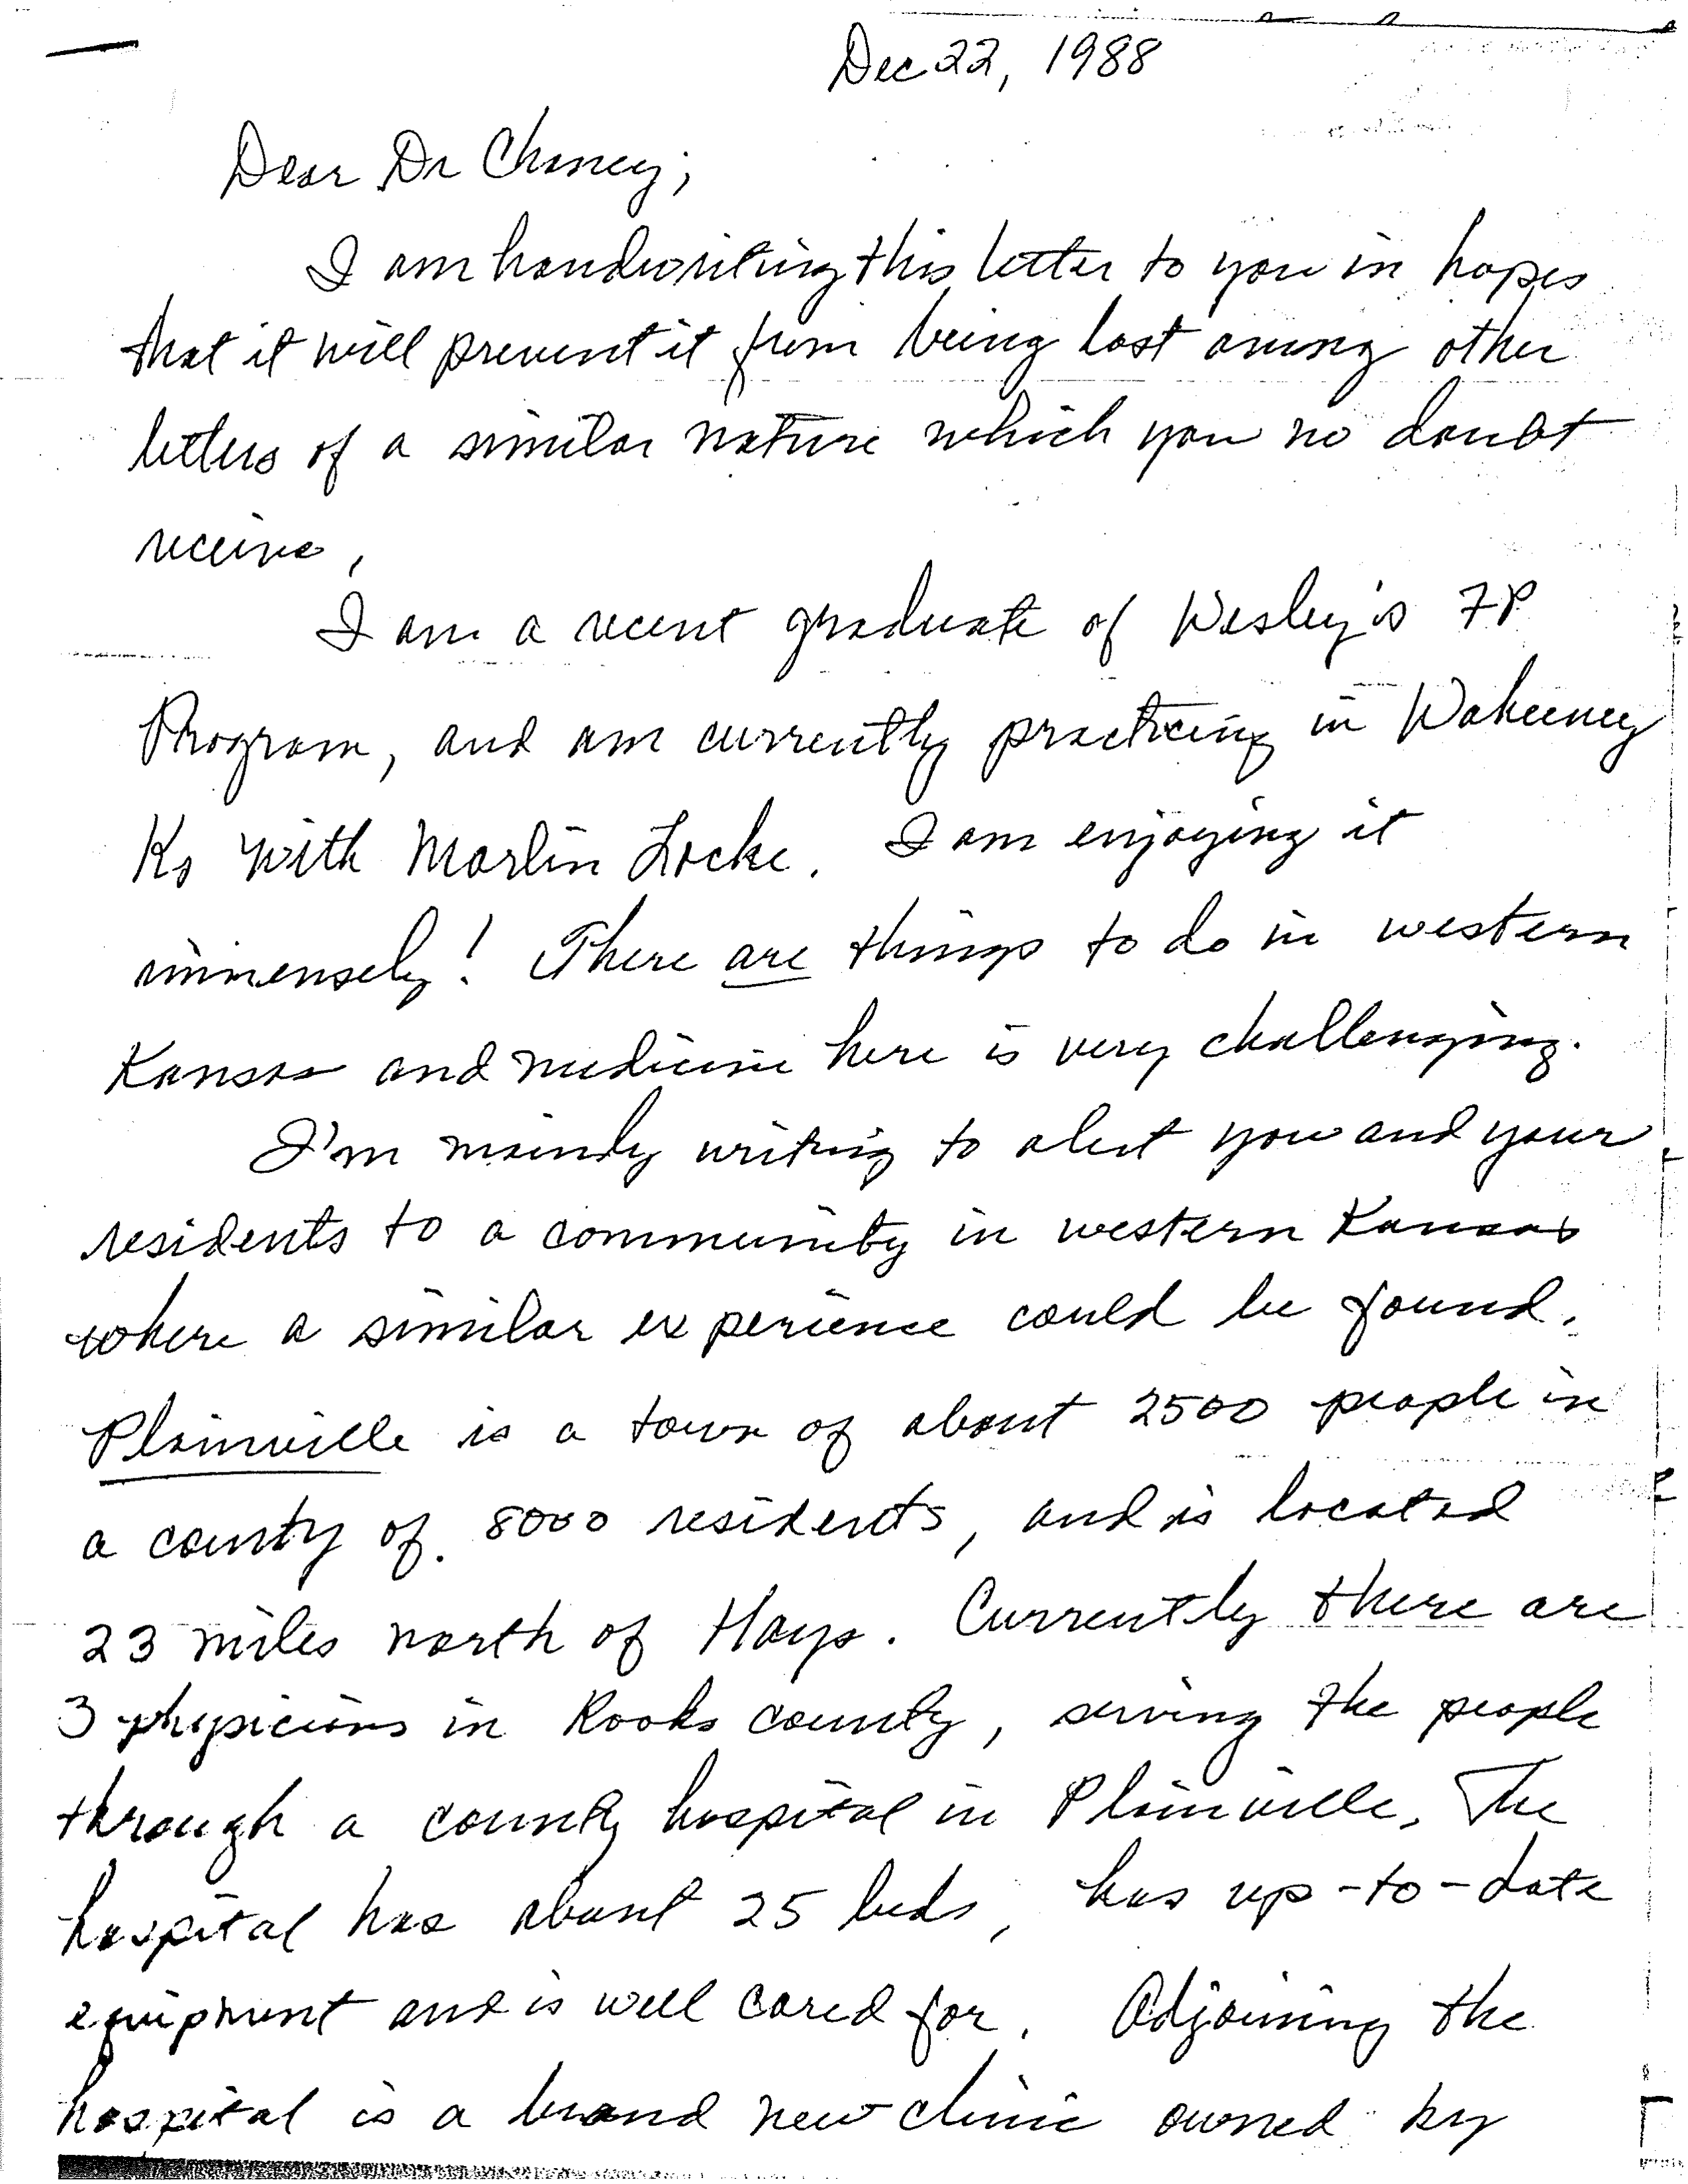 Dec 22, 1988
Dear Dr Chaney;
I am handwriting this letter to you in hopes
that it will prevent it from being lost among other
letters of a similar nature which you no doubt
receive.
I am a recent graduate of Wesley's FP
Program, and am currently practicing in Wakeeney
Ks with Marlin Locke. I am enjoying it
immensely! There are things to do in western
Kansas and medicine here is very challenging.
I'm mainly writing to alert you and your
residents to a community in western Kansas
where a similar experience could be found.
Plainville is a town of about 2500 people in
a county of 8000 residents, and is located
23 miles north of Hays. Currently there are
3 physicians in Rooks county, serving the people
through a county hospital in Plainville. The
hospital has about 25 beds, has up-to-date
equipment and is well cared for. Adjoining the
hospital is a brand new clinic owned by